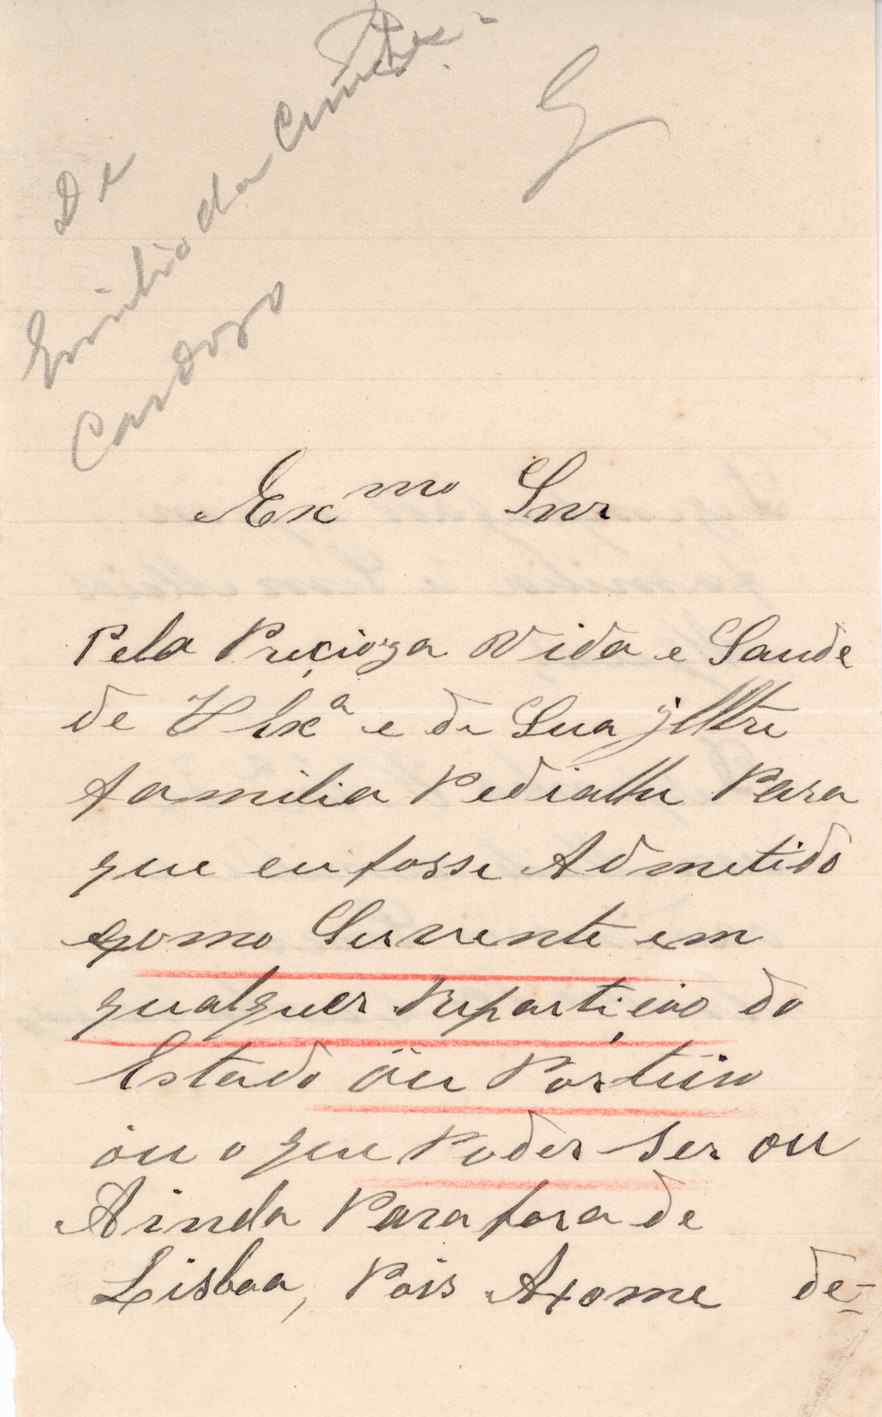 De
Emilio da
Cardozo
G
Exmo Snr
Pela Preçioza Vida e Saude
de V Exª e de Sua jlltre
familia Pedialhe Para
que eu fosse Admetido
gomo Servente em
qualquer Repartição do
Estado ou Porteiro
ou o que Poder ser ou
Ainda Para fora de
Lisboa, Pois Axome de-